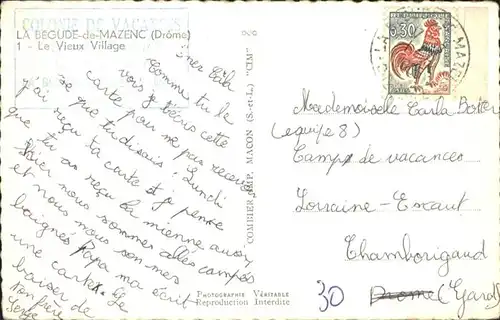 COLONIE DE VACANCES
LA BEGUDE-de-MAZENC (Drôme)
1 - Le Vieux Village
Cher
Comme tu le
vois je t'écris cette
carte pour ne pas recevoir
ce que tu disais. Lundi
j'ai reçu ta carte et je pense
que tu as reçu la mienne aussi
hier nous sommes allés campés
et nous nous sommes
baignés Papa m'a écrit
une carte. Je
baiser de
ton frère
Serge
COMBIER IMP. MACON (S.-et-L.) "CIM"
PHOTOGRAPHIE VÉRITABLE
Reproduction Interdite
0,30
MAZENC
Mademoiselle Carla
(equipe 8)
Camp de vacances
Lorraine-Escaut
Chamborigaud
Drome (Gard)
30